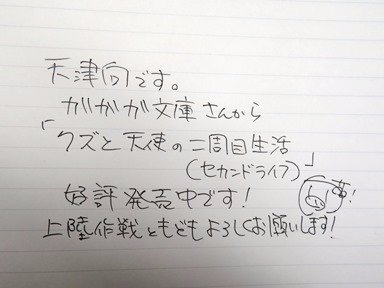 天津向です。
ガガガ文庫さんから
「クズと天使の二周目生活
(セカンドライフ)」
好評発売中です!
上陸作戦ともどもよろしくお願いします!